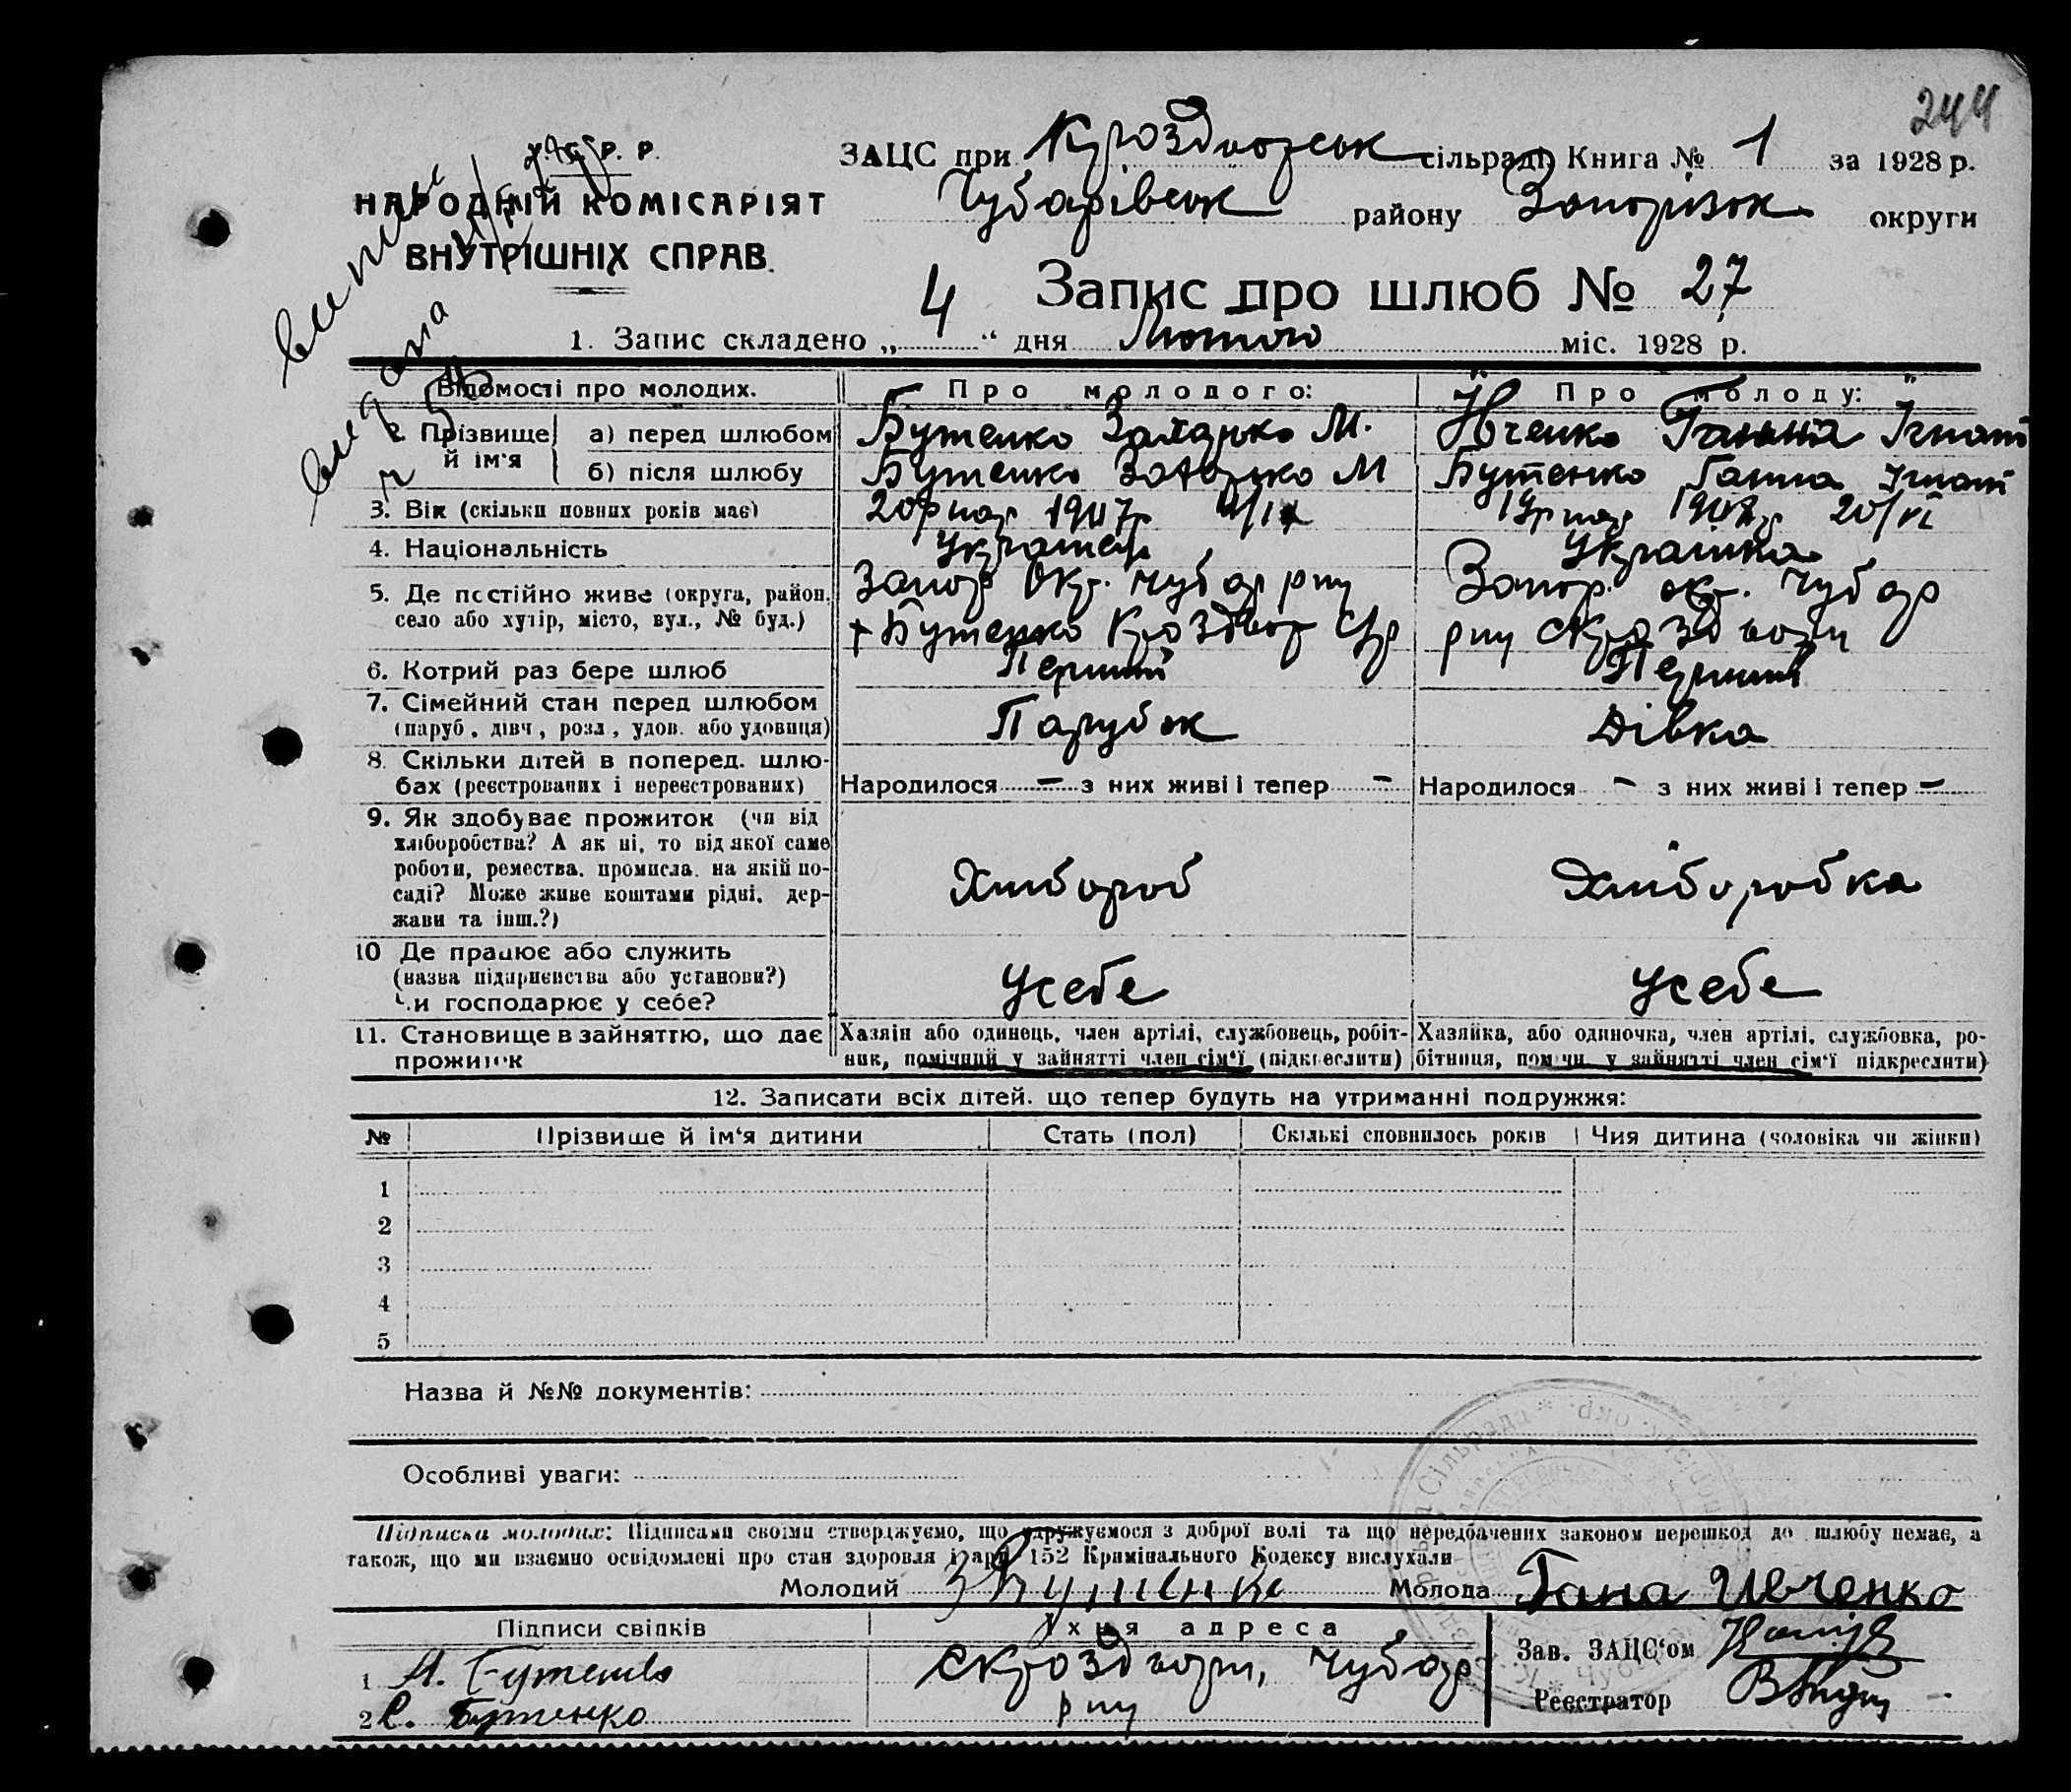 244
У.С.Р.Р.
ЗАЦС при Кроздворськ сільраді Книга № 1 за 1928 р.
НАРОДНІЙ КОМІСАРІЯТ
Чубарівськ району Запорізьк округи
ВНУТРІШНІХ СПРАВ.
Запис про шлюб № 27
1. Запис складено „ 4 “ дня Лютого міс. 1928 р.
Відомості про молодих. Про молодого: Про молоду:
2. Прізвище й ім‘я
а) перед шлюбом Бутенко Захарко М. Ївченко Ганна Ігнат
б) після шлюбу Бутенко Захарко М Бутенко Ганна Ігнат
3. Вік (скільки повних років має) 20 р нар 1907р 19р нар 1908р 20/VI
4. Національність Українец Українка
5. Де постійно живе (округа, район, Запор Окр. Чубар рну Запор. окр. Чубар
село або хутір, місто, вул., № буд.) х Бутенко Кроздвор С/р рну с Кроздвори
6. Котрий раз бере шлюб Перший Перший
7. Сімейний стан перед шлюбом
(паруб., дівч., розл., удов. або удовиця) Парубок Дівка
8. Скільки дітей в поперед. шлю-
бах (реєстрованих і нереєстрованих) Народилося – з них живі і тепер – Народилося – з них живі і тепер –
9. Як здобуває прожиток (чи від
хліборобства? А як ні, то від якої саме
роботи, ремества, промисла, на якій по-
саді? Може живе коштами рідні, дер-
жави та інш.?)
Хлібороб Хліборобка
10 Де працює або служить
(назва підприємства або установи?)
Чи господарює у себе?
Усебе Усебе
11. Становище в зайняттю, що дає Хазяін або одинець, член артілі, службовець, робіт- Хазяйка, або одиночка, член артілі, службовка, ро-
прожиток ник, помічний у зайнятті член сім‘ї (підкреслити) бітниця, помічн. у зайнятті член сім‘ї підкреслити)
12. Записати всіх дітей, що тепер будуть на утриманні подружжя:
№ Прізвище й ім‘я дитини Стать (пол) Скількі сповнилось років Чия дитина (чоловіка чи жінки)
1
2
3
4
5
Назва й №№ документів:
Особливі уваги:
Підписка молодих: Підписами своїми стверджуємо, що одружуємося з доброї волі та що передбачених законом перешкод до шлюбу немає, а
також, що ми взаємно освідомлені про стан здоровля і арт 152 Кримінального Кодексу вислухали
Молодий З Бутенко Молода Гана Ивченко
Підписи свідків Їхня адреса
1 М. Бутенко с Кроздвори, Чубар
2 С. Бутенко рну
Зав. ЗАЦС‘ом
Реєстратор